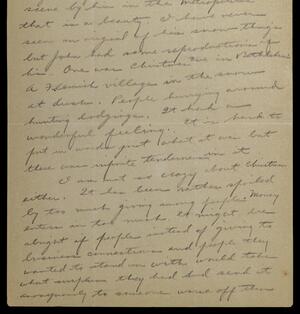 scene by him in the Metropolitan
that is a beauty. I have never
seen an original of his snow things
but John had some reproductions of
his. One was Christmas Eve in Bethlehem
A Flemish village in the snow
at dusk. People hurrying around
hunting lodgings. It had a
wonderful feeling. It is hard to
put in words just what it was but
there was infinite tenderness in it
I am not so crazy about Christmas
either. It has been rather spoiled
by too much giving among people. Money
enters in too much. It might be
alright if people instead of giving to
business connections and people they
wanted to stand in with would take
what surplus they had and send it
anonymously to someone worse off than